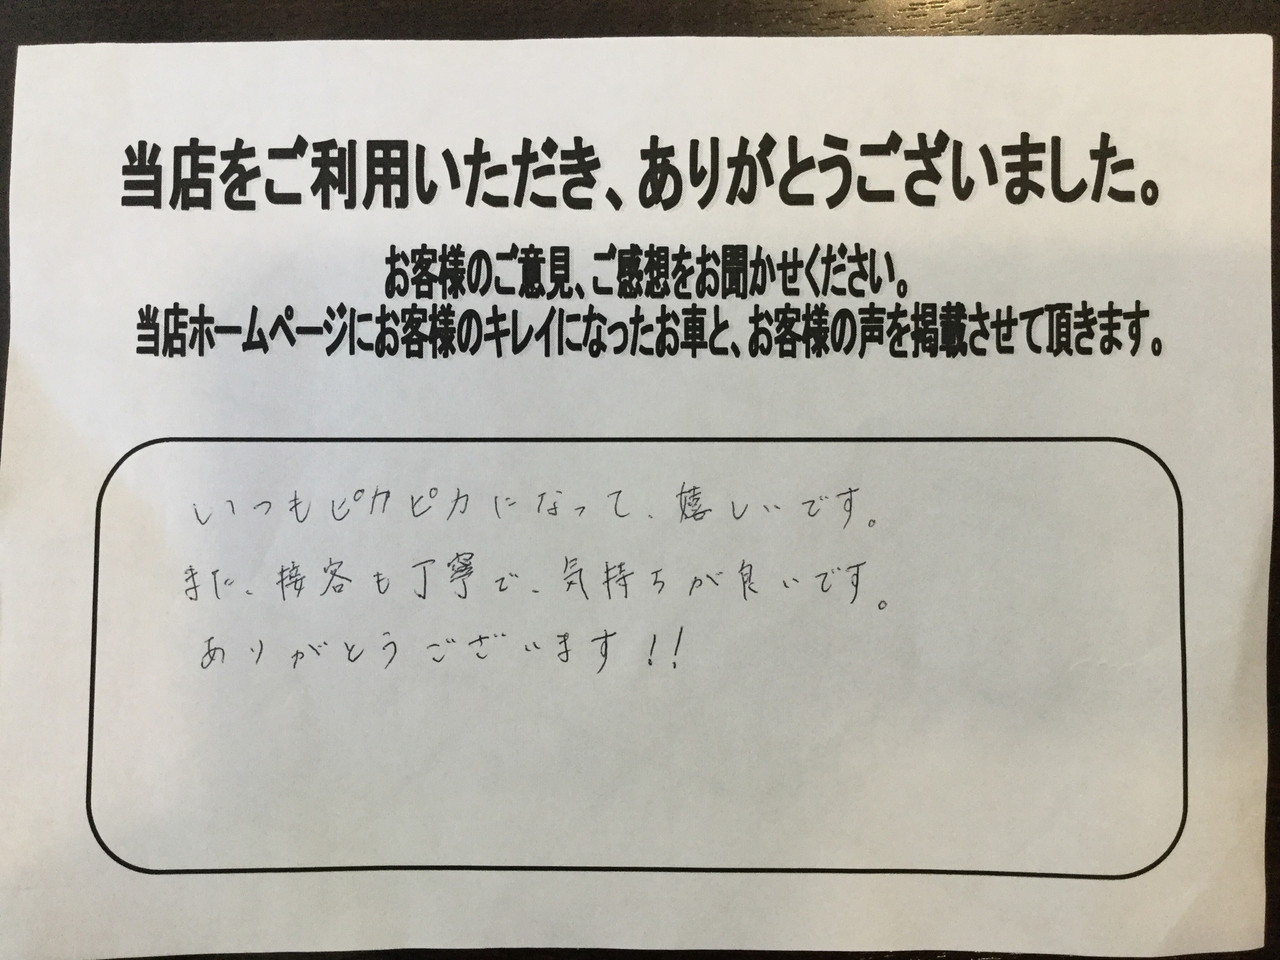 当店をご利用いただき、ありがとうございました。
お客様のご意見、ご感想をお聞かせください。
当店ホームページにお客様のキレイになったお車と、お客様の声を掲載させて頂きます。
いつもピカピカになって、嬉しいです。
また、接客も丁寧で、気持ちが良いです。
ありがとうございます!!